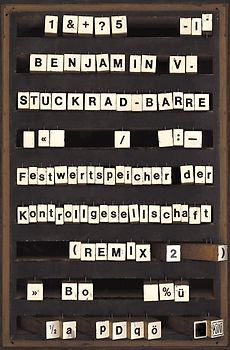 1&+?5 -!"
BENJAMIN V.
STUCKRAD-BARRE
! « / ;:—
Festwertspeicher der
Kontrollgesellschaft
(REMIX 2 )
» Bo %ü
½a pDqö